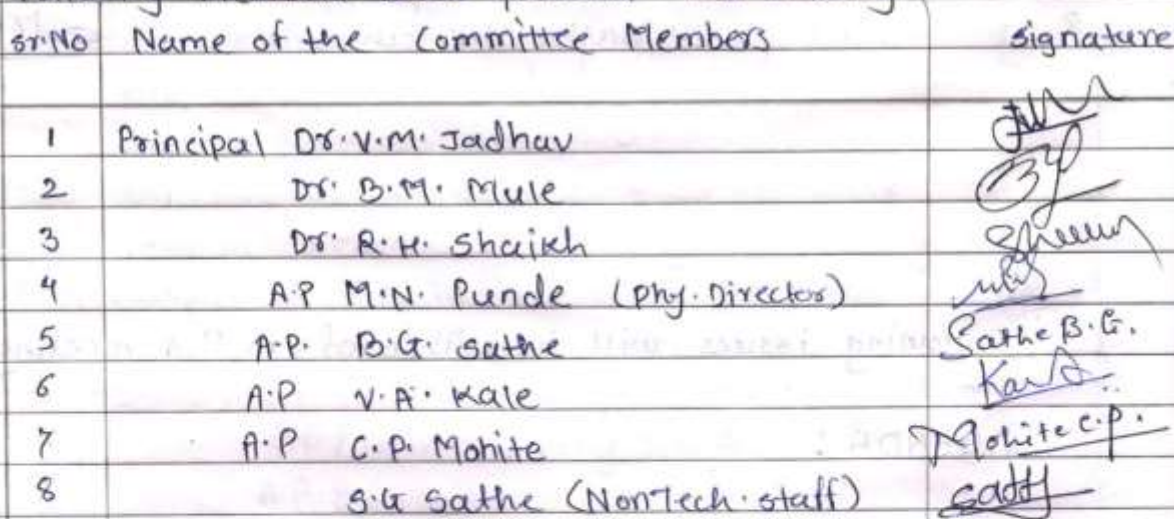 Sr.No Name of the Committee Members signature
1 Principal Dr. V.M. Jadhav
2 Dr. B.M. Mule
3 Dr. R.H. Shaikh
4 A.P M.N. Punde (Phy. Director)
5 A.P. B.G. Sathe Sathe B.G.
6 A.P V.A. Kale
7 A.P C.P. Mohite Mohite C.P.
8 S.G Sathe (NonTech. staff)